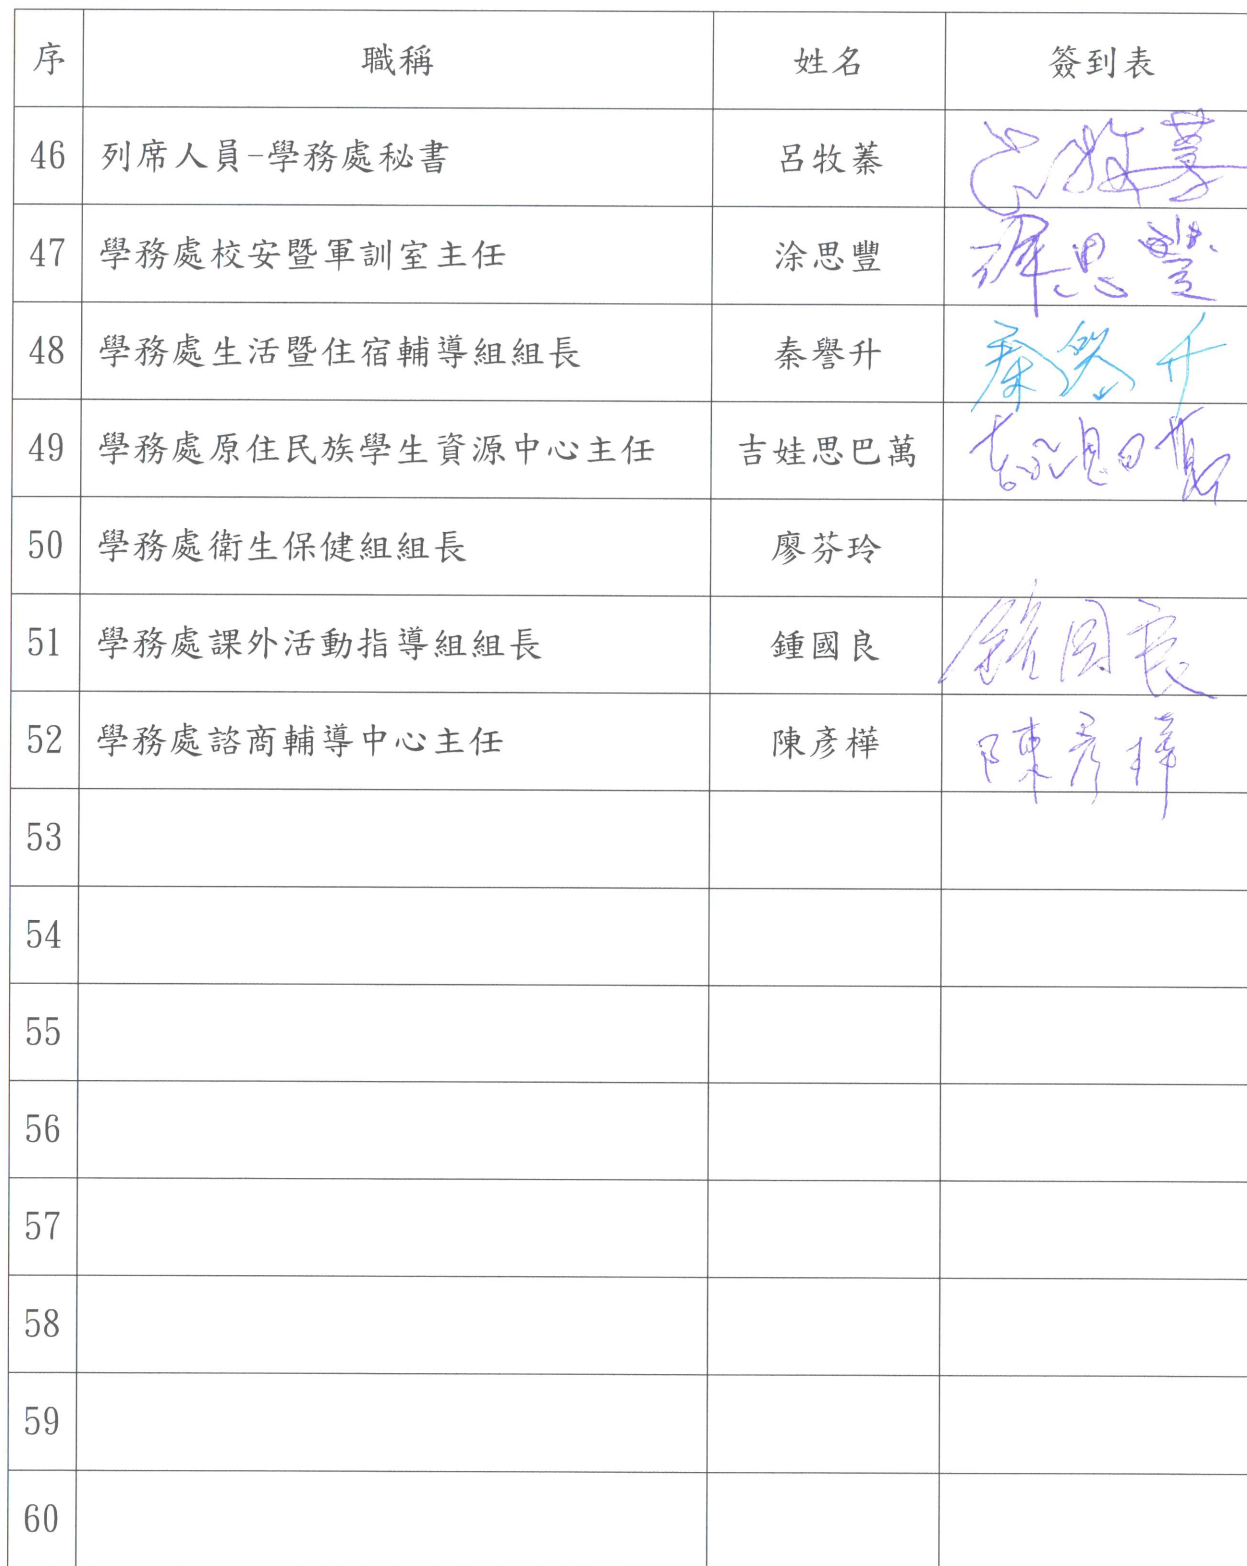 序 職稱 姓名 簽到表
46 列席人員-學務處秘書 呂牧蓁 呂牧蓁
47 學務處校安暨軍訓室主任 涂思豐 涂思豐
48 學務處生活暨住宿輔導組組長 秦譽升 秦譽升
49 學務處原住民族學生資源中心主任 吉娃思巴萬
50 學務處衛生保健組組長 廖芬玲
51 學務處課外活動指導組組長 鍾國良 鍾國良
52 學務處諮商輔導中心主任 陳彥樺 陳彥樺
53
54
55
56
57
58
59
60